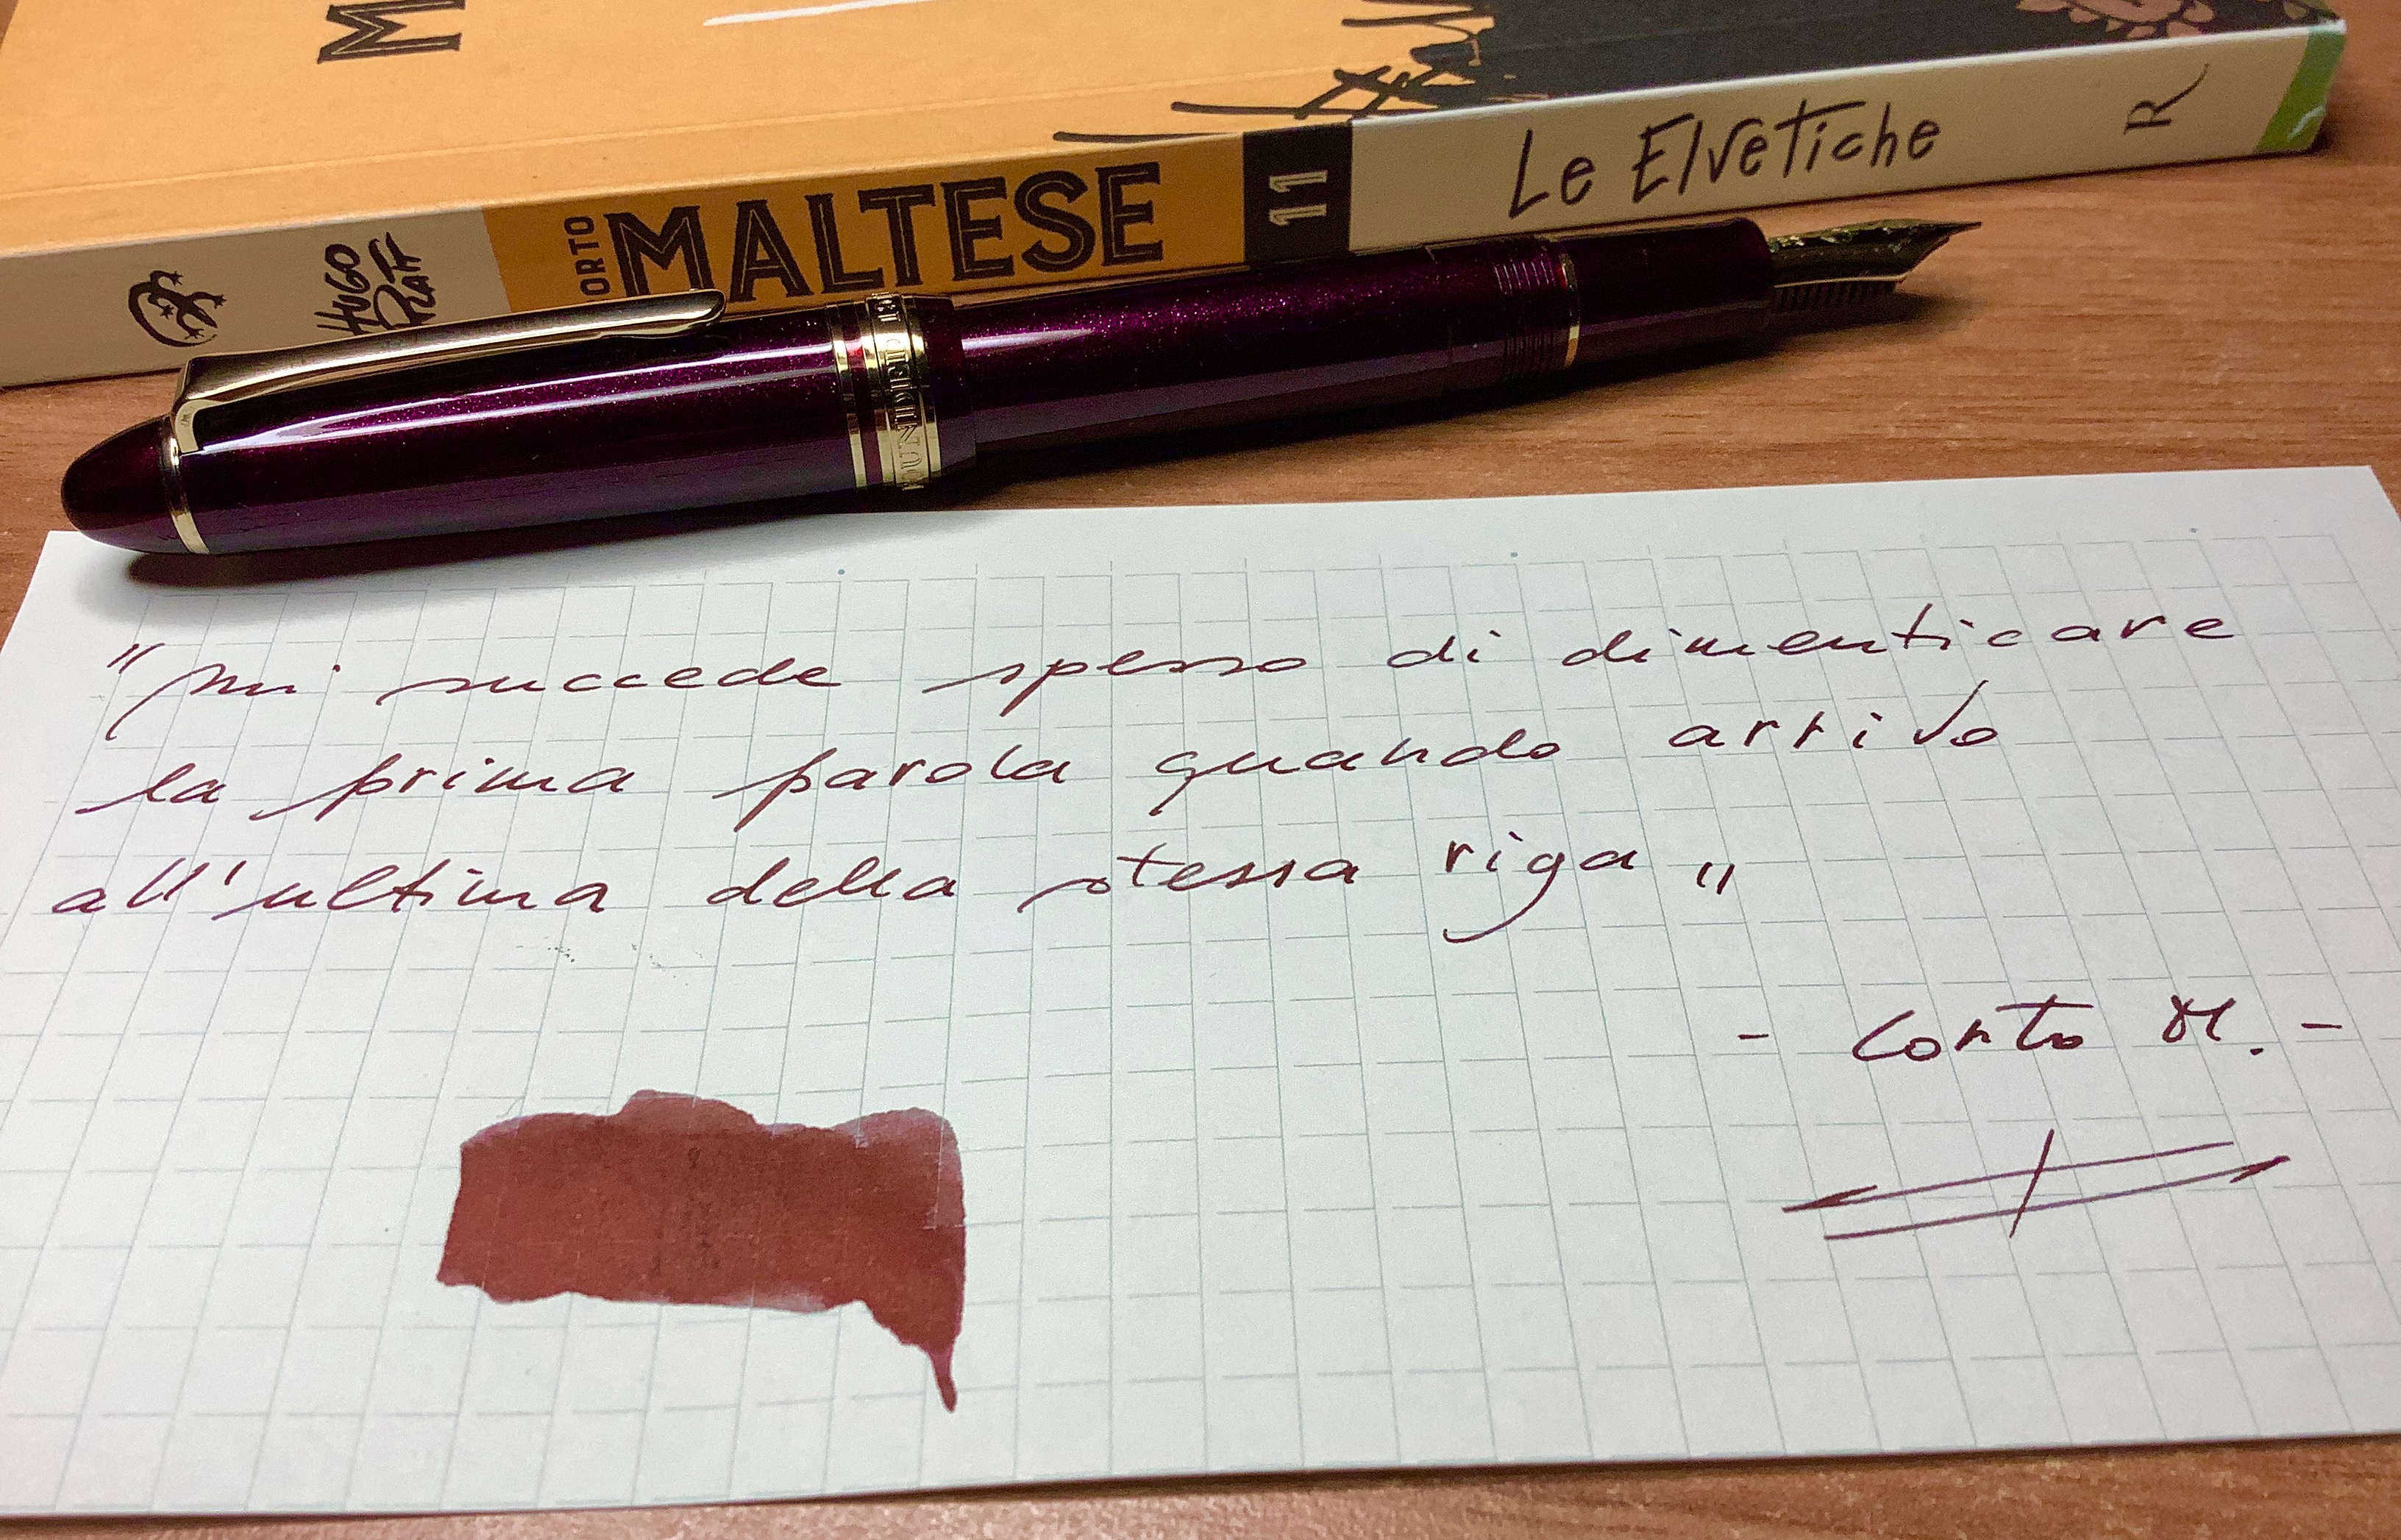 M
HUGO
PRATT
ORTO
MALTESE
11
Le Elvetiche
R
"mi succede spesso di dimenticare
la prima parola quando arrivo
all'ultima della stessa riga"
- Corto M. -